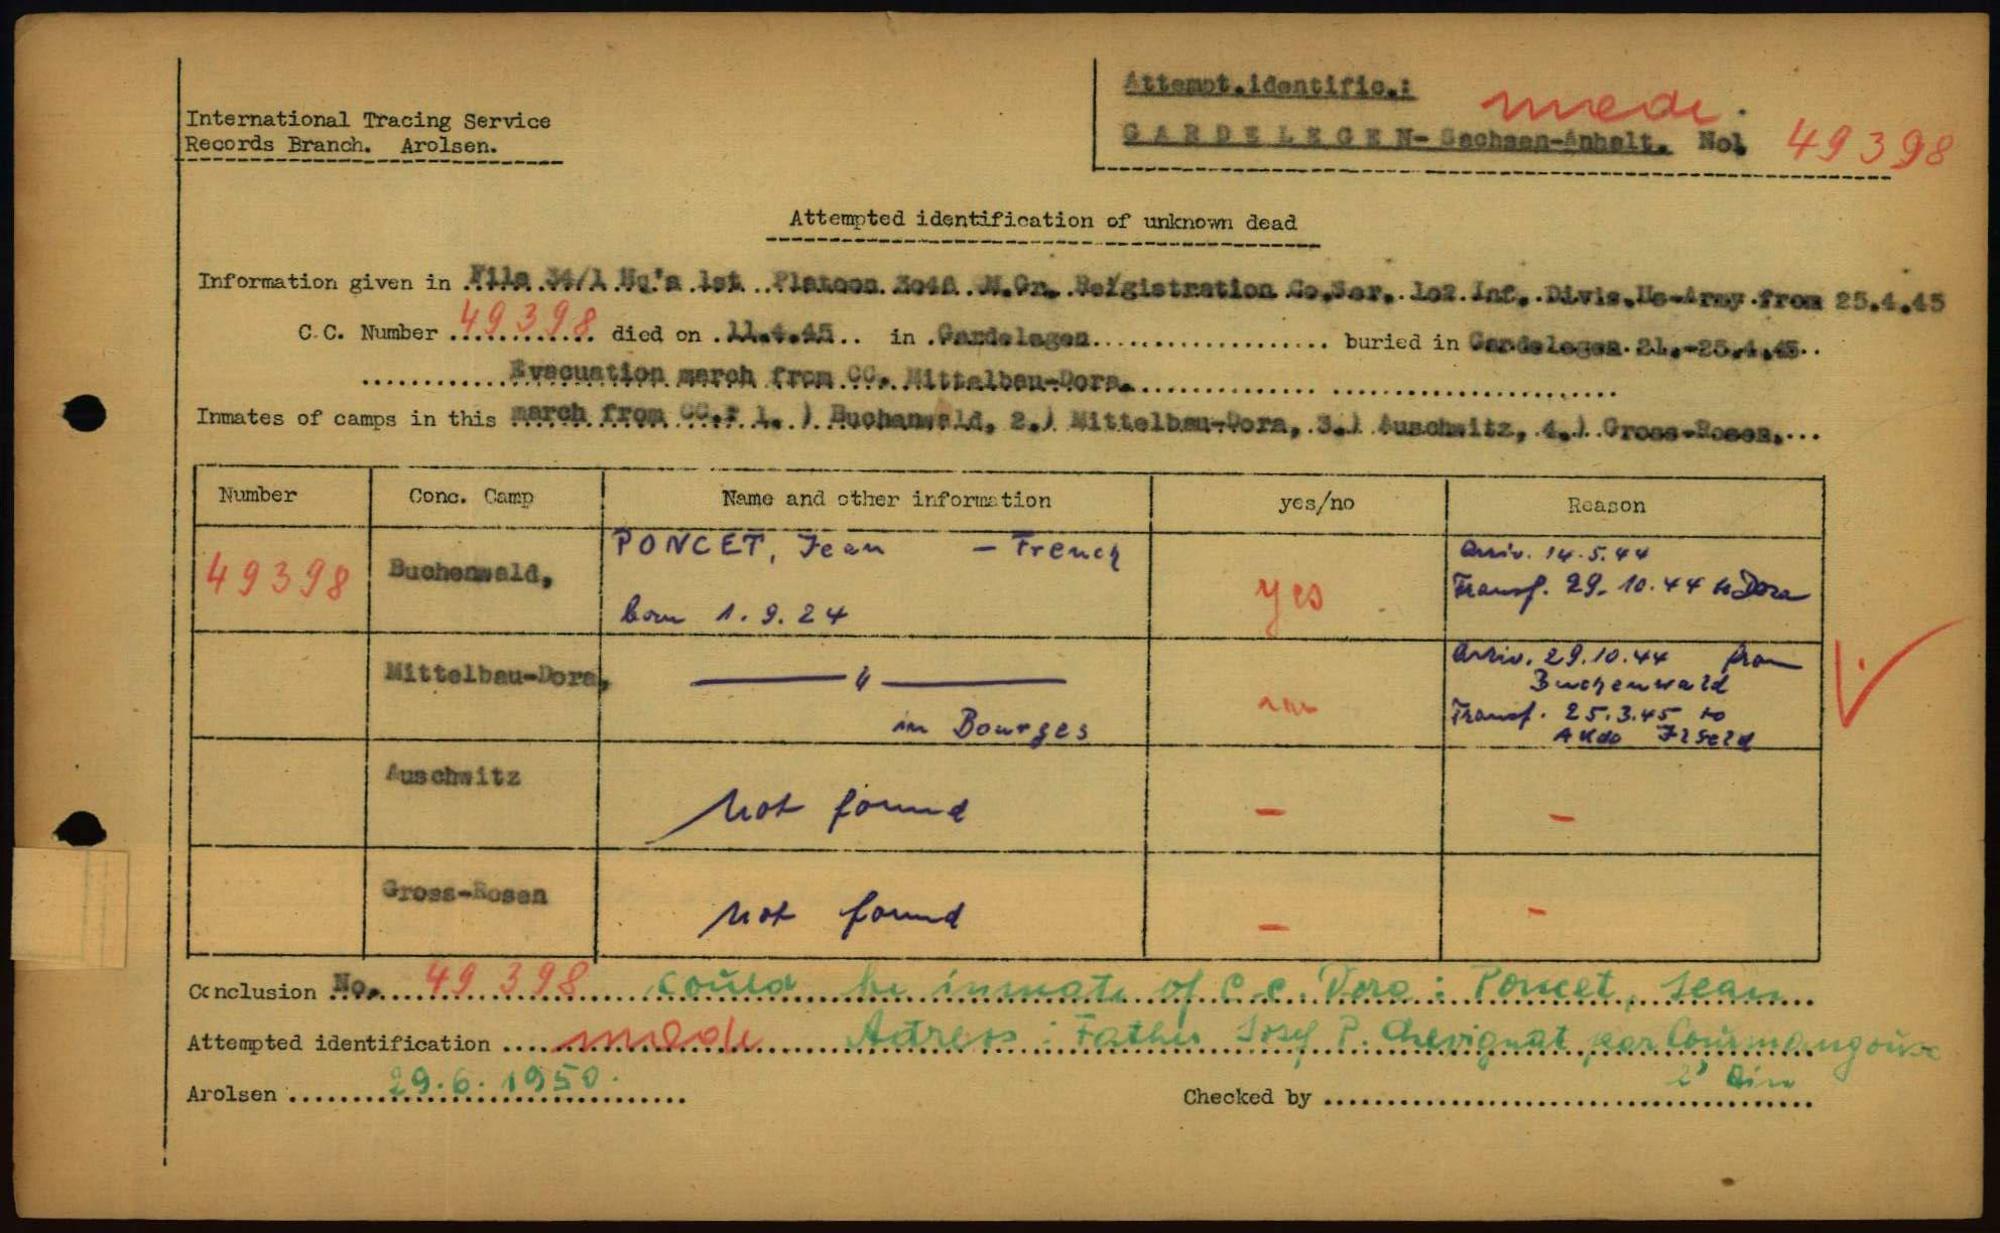 Attempt.identific.: made.
International Tracing Service
Records Branch. Arolsen.
GARDELEGEN-Sachsen-Anhalt. No. 49398
Attempted identification of unknown dead
Information given in File 34/1 Hq's 1st Platoon 3046 M.Gr. Re/gistration Co.Ser. 102 Inf. Divis.Us-Army from 25.4.45
C.C. Number 49398 died on 11.4.45 in Gardelegen buried in Gardelegen 21.-25.4.45
Evacuation march from CC. Mittelbau-Dora.
Inmates of camps in this march from CC.: 1.) Buchenwald, 2.) Mittelbau-Dora, 3.) Auschwitz, 4.) Gross-Rosen.
Number Conc. Camp Name and other information yes/no Reason
49398 Buchenwald, PONCET, Jean - French yes Arriv. 14.5.44
born 1.9.24 Transf. 29.10.44 to Dora
Mittelbau-Dora, — " — Arriv. 29.10.44 from
Buchenwald
in Bourges Transf. 25.3.45 to
Akdo Ilfeld
Auschwitz not found - -
Gross-Rosen not found - -
Conclusion No. 49398 could be inmate of C.C. Dora: Poncet, Jean
Attempted identification made Adress: Father Josef P. Chevignat par Courmangoux
Ain
Arolsen 29.6.1950. Checked by